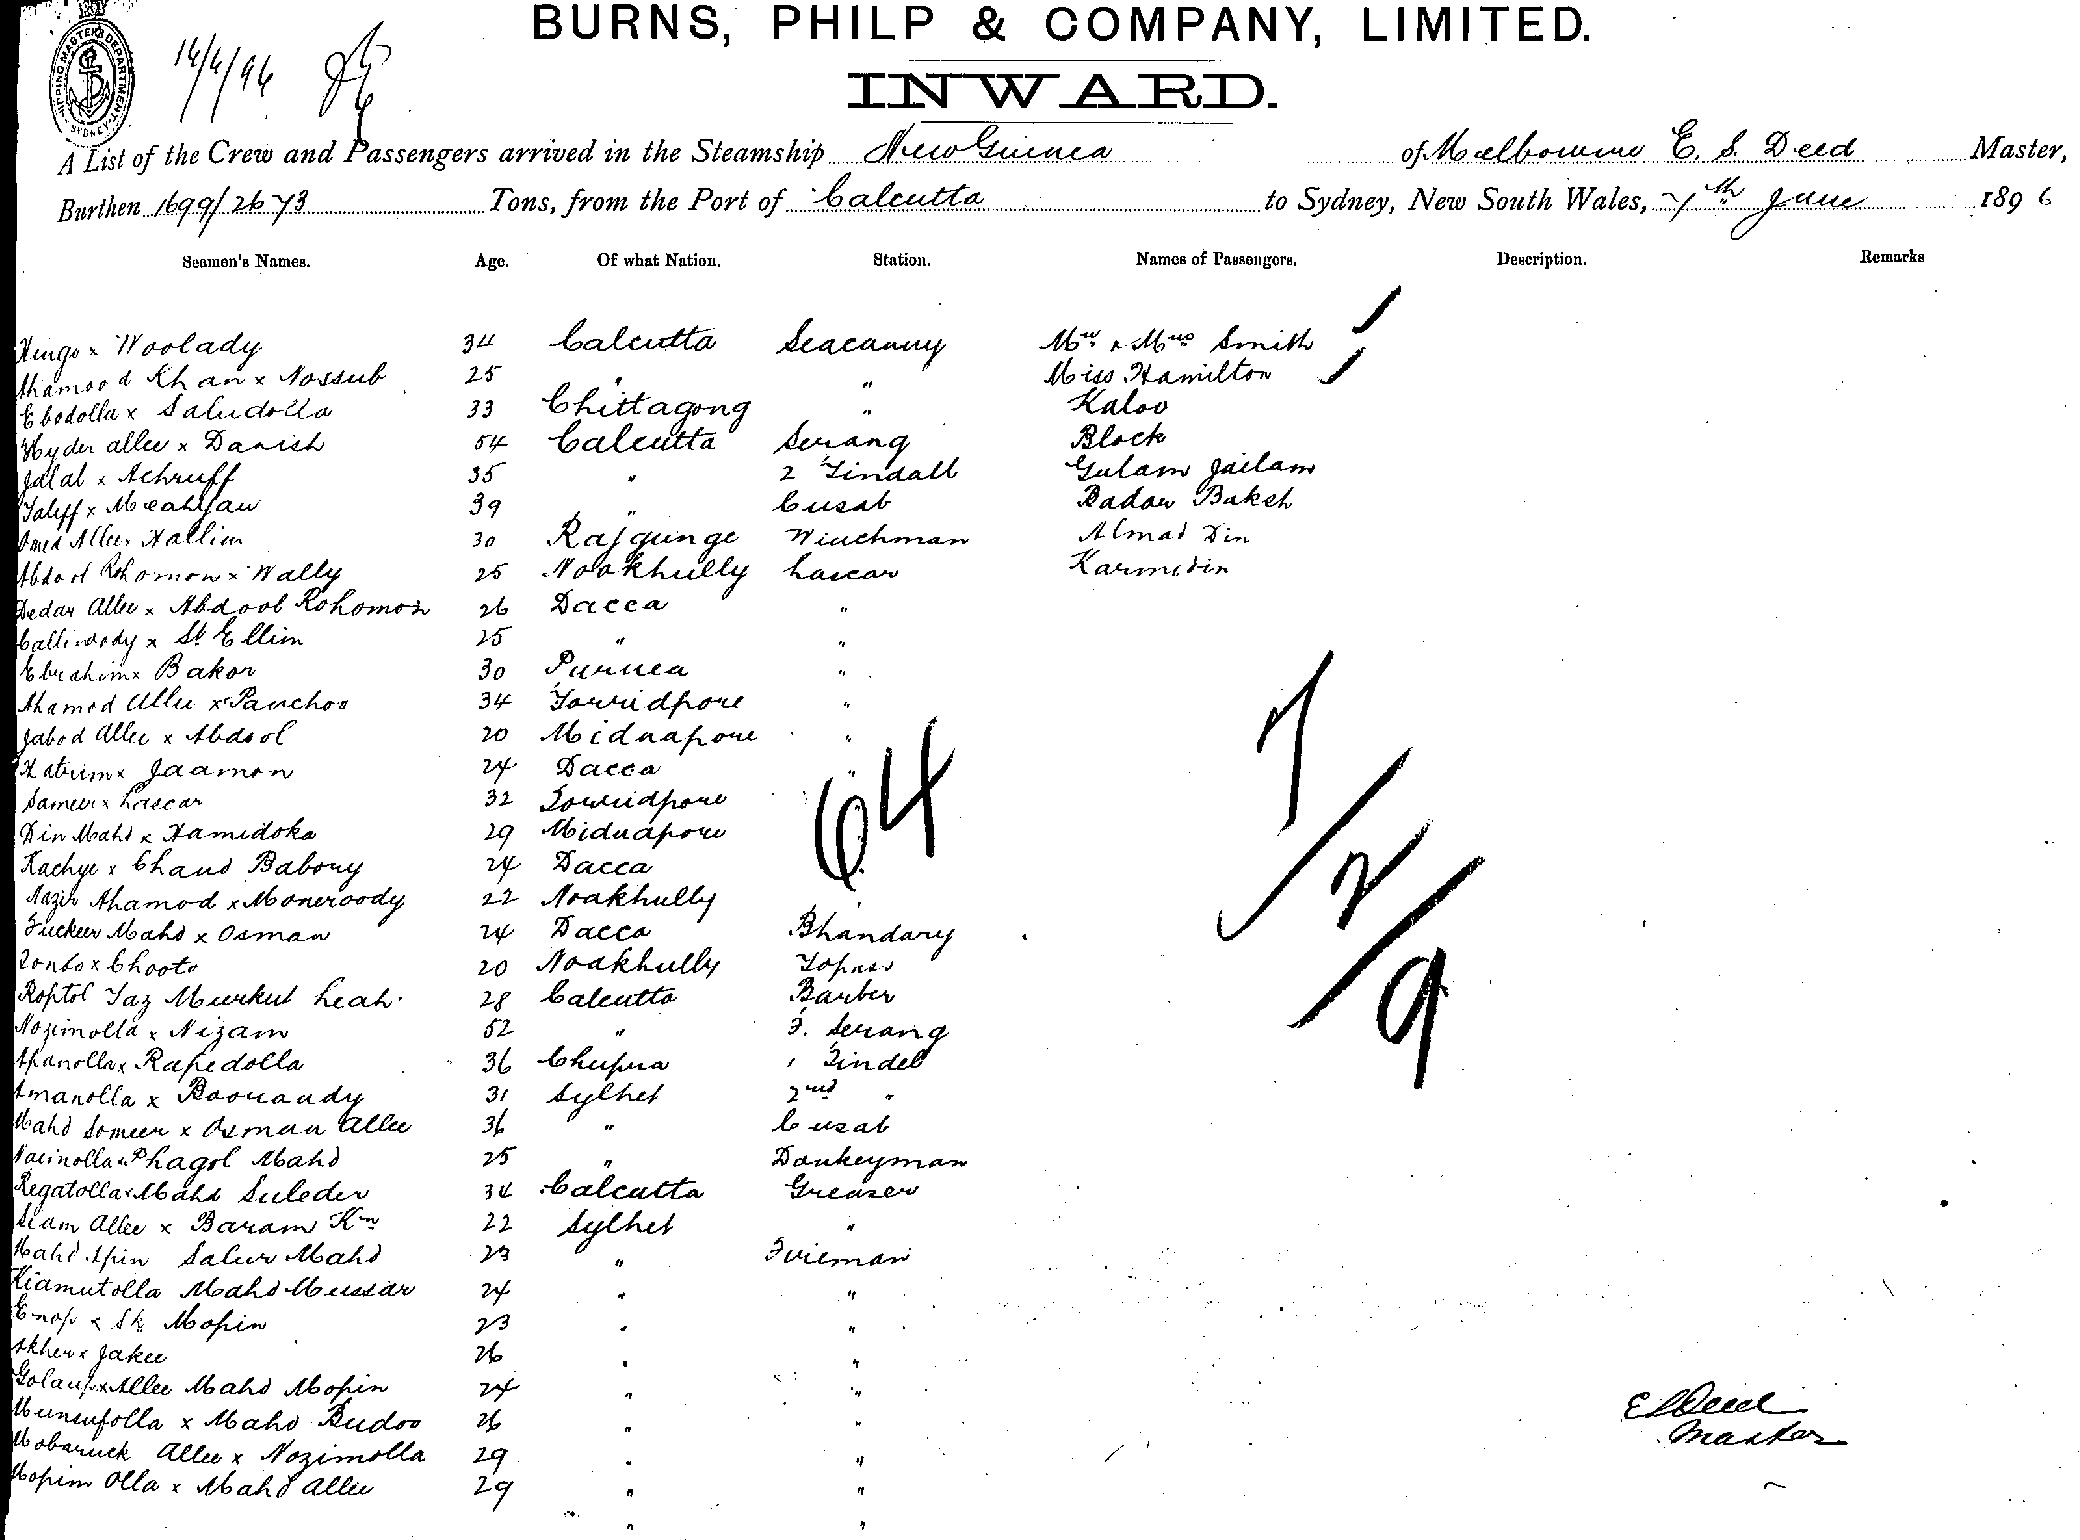 BURNS, PHILP & COMPANY, LIMITED.
14/4/96
INWARD.
SHIPPING MASTER'S DEPARTMENT SYDNEY
A List of the Crew and Passengers arrived in the Steamship New Guinea of Melbourne E. S. Deed Master,
Burthen 1699/2673 Tons, from the Port of Calcutta to Sydney, New South Wales, 7th June 1896
Seamen's Names. Age. Of what Nation. Station. Names of Passengers. Description. Remarks
Hingo x Woolady 34 Calcutta Seacunny Mr & Mrs Smith
Ahamood Khan x Nossub 25 " " Miss Hamilton
Ebodolla x Saludolla 33 Chittagong " Kaloo
Hyder allee x Danish 54 Calcutta Serang Block
Jalal x Achruff 35 " 2 Tindall Gulam Jailam
Taliff x Meahjan 39 " Cusab Badar Baksh
Allee Hallim 30 Rajgunge Winchman Almad Din
Abdool Rohomon x Wally 25 Noakhully Lascar Karmidin
Dedar Allee x Abdool Rohomon 26 Dacca "
x Sk Ellim 25 " "
Ebrahim x Bakor 30 Purnea "
Ahamed Allee x Panchoo 34 Forridpore "
Jabod Allee x Abdool 20 Midnapore "
Katrim x Jaamon 24 Dacca "
Sameer x Lascar 32 Forridpore
Din Mahd x Hamidoka 29 Midnapore
Kachye x Chand Babory 24 Dacca
Nazir Ahamod x Moneroody 22 Noakhully
Fuckeer Mahd x Osman 24 Dacca Bhandary
x Chooto 20 Noakhully Topass
Roptol Taz Murkut Leah 28 Calcutta Barber
Nozimolla x Nizam 52 " F. Serang
Apanolla x Rapedolla 36 Chupra 1 Tindel
Amanolla x 31 Sylhet 2nd "
Mahd Someer x Osman Allee 36 " Cusab
Nacinolla x Phagol Mahd 25 " Donkeyman
Regatolla x Mahd Suleder 34 Calcutta Greaser
Siam Allee x Baram Kn 22 Sylhet "
Mahd Apin Salur Mahd 23 " Fireman
Kiamutolla Mahd Mussar 24 " "
Enop x Sk Mopin 23 " "
Akher x Jakee 26 " "
Golaup x Allee Mahd Mopin 24 " "
Munsufolla x Mahd Budoo 26 " "
Mobaruck Allee x Nozimolla 29 " "
Mopim Olla x Mahd Allee 29 " "
" "
64
7/2/9
E S Deed
Master